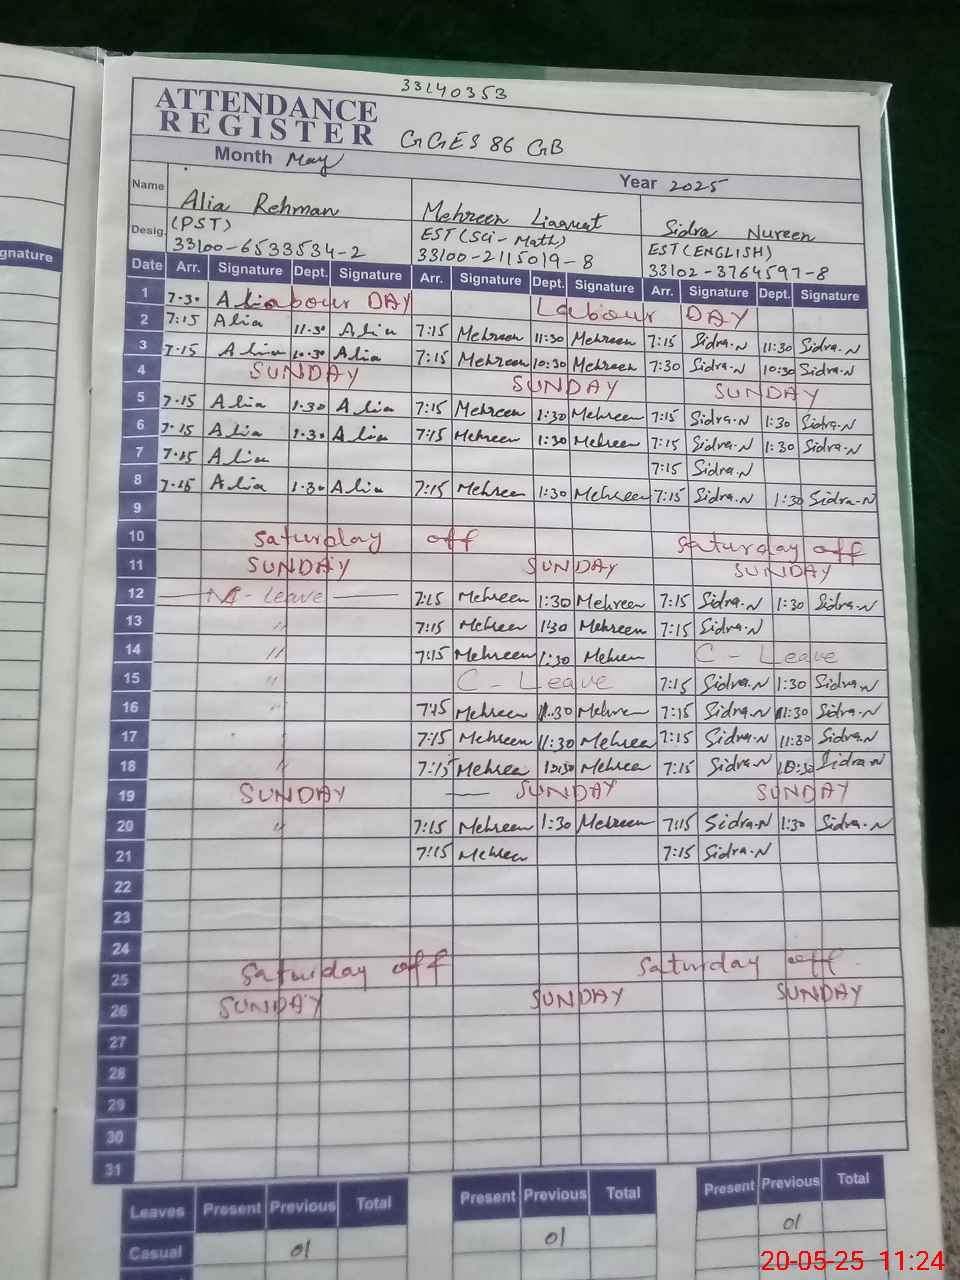 33140353
ATTENDANCE
REGISTER GGES 86 GB
Month May Year 2025
Name Alia Rehman Mehreen Liaquat Sidra Nureen
Desig. (PST) EST(Sci-Math) EST(ENGLISH)
33100-6533534-2 33100-2115019-8 33102-3764597-8
Date Arr. Signature Dept. Signature Arr. Signature Dept. Signature Arr. Signature Dept. Signature
1 7.30 Labour DAY Labour DAY
2 7:15 Alia 11.30 Alia 7:15 Mehreen 11:30 Mehreen 7:15 Sidra.N 11:30 Sidra.N
3 7.15 Alia 10.30 Alia 7:15 Mehreen 10:30 Mehreen 7:30 Sidra.N 10:30 Sidra.N
4 SUNDAY SUNDAY SUNDAY
5 7.15 Alia 1.30 Alia 7:15 Mehreen 1:30 Mehreen 7:15 Sidra.N 1:30 Sidra.N
6 7.15 Alia 1.30 Alia 7:15 Mehreen 1:30 Mehreen 7:15 Sidra.N 1:30 Sidra.N
7 7.15 Alia 7:15 Sidra.N
8 7.15 Alia 1.30 Alia 7:15 Mehreen 1:30 Mehreen 7:15 Sidra.N 1:30 Sidra-N
9
10 Saturday off Saturday off
11 SUNDAY SUNDAY SUNDAY
12 - Leave 7:15 Mehreen 1:30 Mehreen 7:15 Sidra.N 1:30 Sidra.N
13 " 7:15 Mehreen 1:30 Mehreen 7:15 Sidra.N
14 " 7:15 Mehreen 1:30 Mehreen C - Leave
15 " C - Leave 7:15 Sidra.N 1:30 Sidra.N
16 " 7:15 Mehreen 11.30 Mehreen 7:15 Sidra.N 11:30 Sidra.N
17 " 7:15 Mehreen 11:30 Mehreen 7:15 Sidra.N 11:30 Sidra.N
18 " 7:15 Mehreen 10:30 Mehreen 7:15 Sidra.N 10:30 Sidra.N
19 SUNDAY SUNDAY SUNDAY
20 " 7:15 Mehreen 1:30 Mehreen 7:15 Sidra.N 1:30 Sidra.N
21 7:15 Mehreen 7:15 Sidra.N
22
23
24
25 Saturday off Saturday off
26 SUNDAY SUNDAY SUNDAY
27
28
29
30
31
Leaves Present Previous Total Present Previous Total Present Previous Total
Casual 01 01 01
gnature
20-05-25 11:24